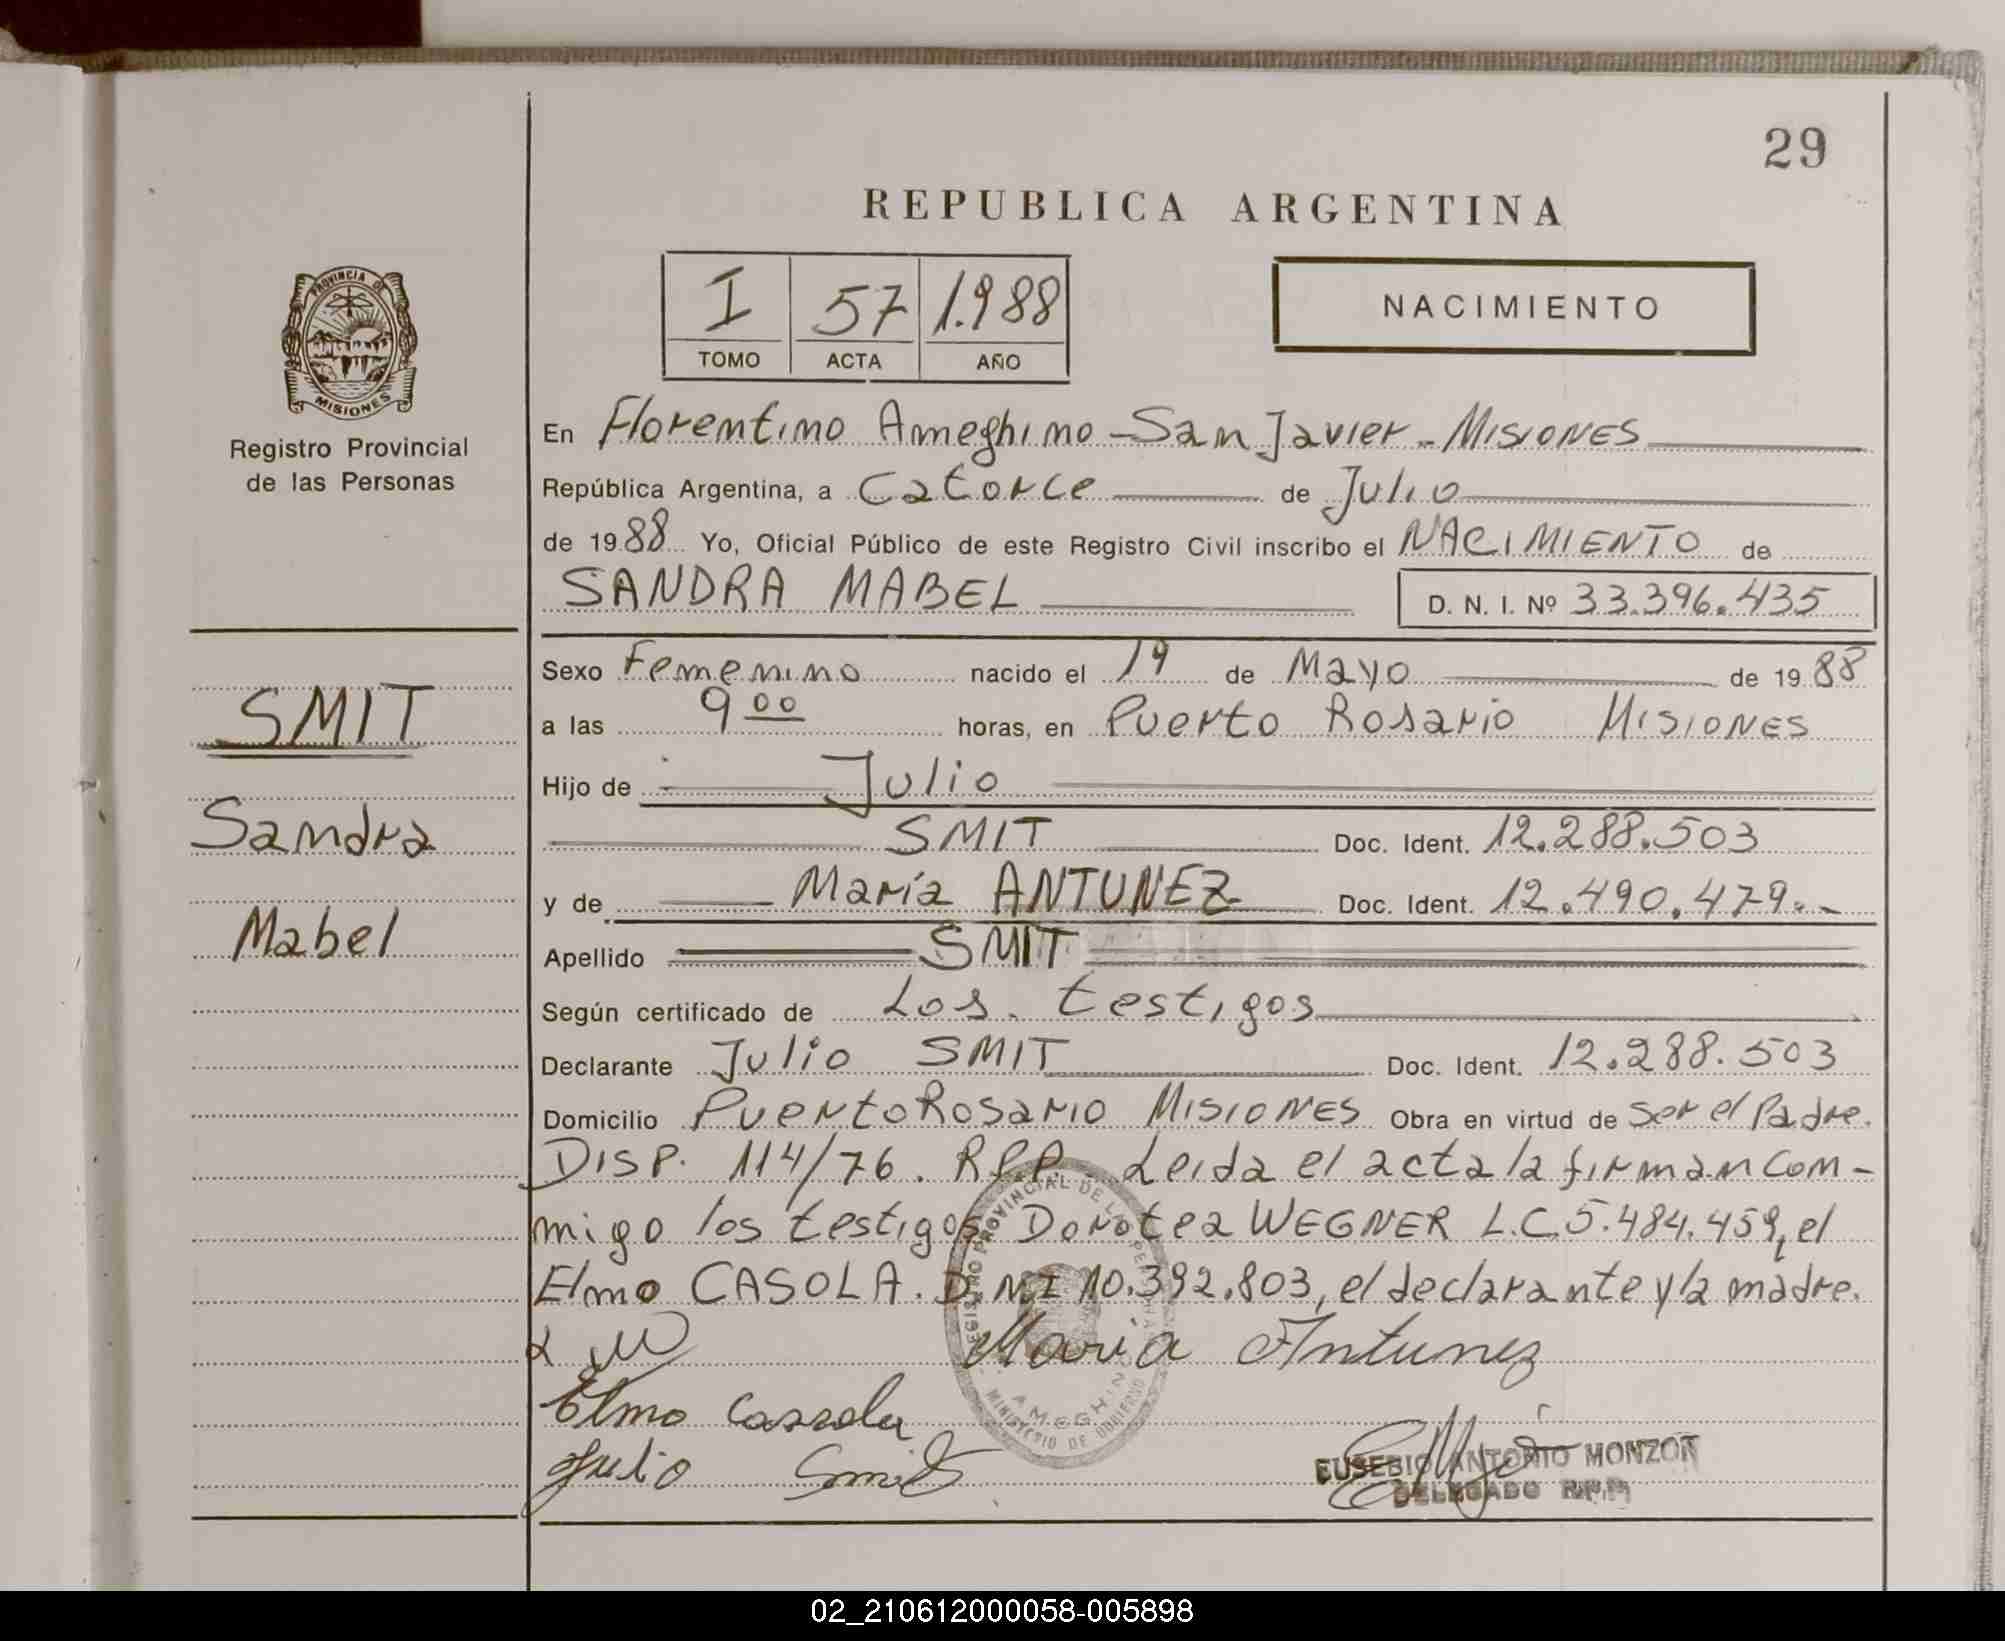 29
REPUBLICA ARGENTINA
I 57 1.988
TOMO ACTA AÑO
NACIMIENTO
PROVINCIA DE
MISIONES
Registro Provincial
de las Personas
SMIT
Sandra
Mabel
En Florentino Ameghino - San Javier - MISIONES
República Argentina, a Catorce de Julio
de 1988 Yo, Oficial Público de este Registro Civil inscribo el NACIMIENTO de
SANDRA MABEL D. N. I. Nº 33.396.435
Sexo Femenino nacido el 19 de Mayo de 1988
a las 9 00 horas, en Puerto Rosario MISIONES
Hijo de Julio
SMIT Doc. Ident. 12.288.503
y de María ANTUNEZ Doc. Ident. 12.490.479.-
Apellido SMIT
Según certificado de Los testigos
Declarante Julio SMIT Doc. Ident. 12.288.503
Domicilio Puerto Rosario MISIONES Obra en virtud de ser el Padre.
DISP. 114/76. RPP. Leida el acta la firman con-
migo los testigos Dorotea WEGNER L.C. 5.484.459, el
Elmo CASOLA. D.N.I 10.392.803, el declarante y la madre.
Maria Antunez
Elmo Cassola
Julio Smit
REGISTRO PROVINCIAL DE LAS PERSONAS
AMEGHINO
MINISTERIO DE GOBIERNO
EUSEBIO ANTONIO MONZON
DELEGADO R.P.P.
02_210612000058-005898